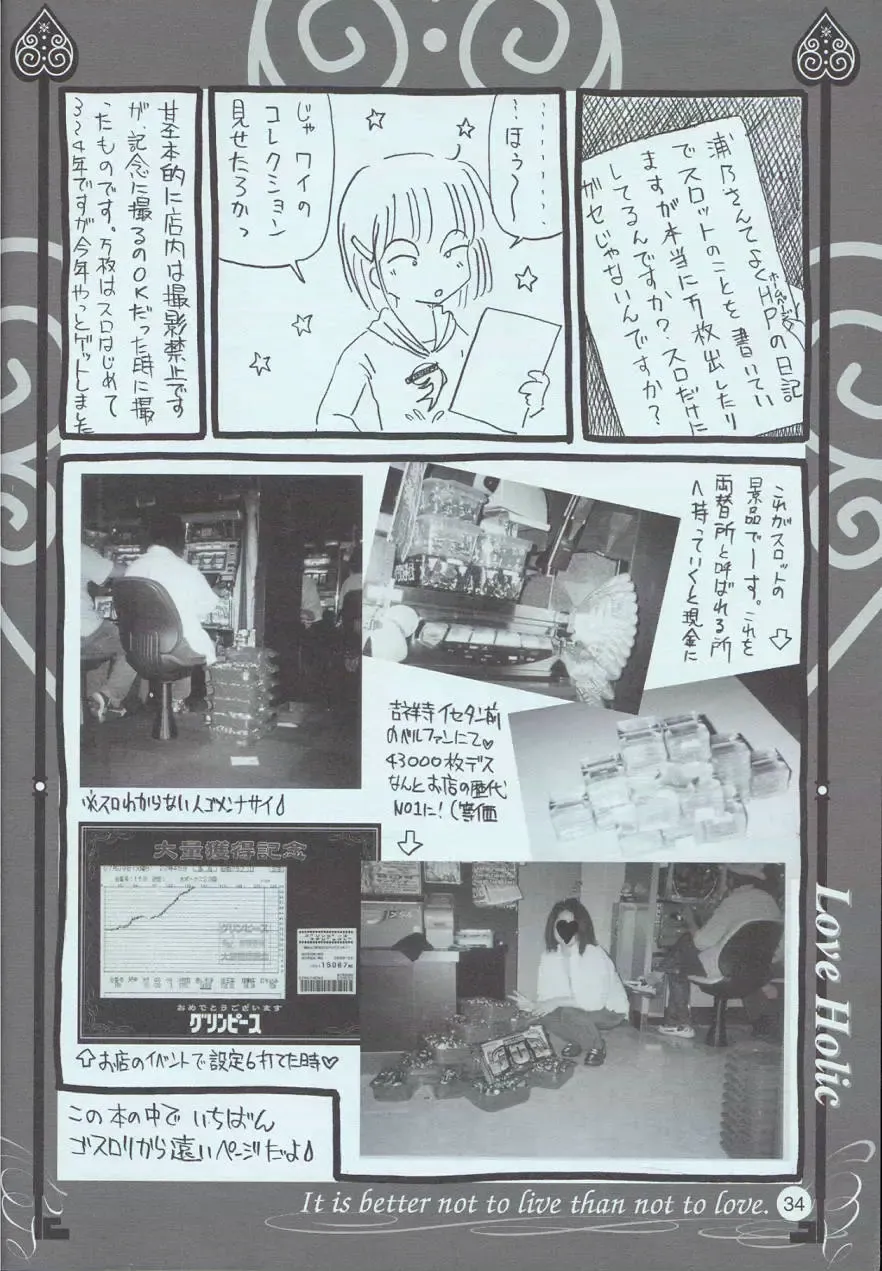 浦乃さんてよくHPの日記
でスロットのことを書いてい
ますが本当に万枚出したり
してるんですか?スロだけに
ガセじゃないんですか?
………
…ほぅ〜
じゃ ワイの
コレクション
見せたろかっ
基本的に店内は撮影禁止です
が、記念に撮るのOKだった時に撮
ったものです。万枚はスロはじめて
3〜4年ですが今年やっとゲットしました
これがスロットの
景品でーす。これを
両替所と呼ばれる所
へ持っていくと現金に
吉祥寺イセタン前
のベルファンにて♡
43000枚デス
なんとお店の歴代
NO1に!(等価
※スロわからない人ゴメンナサイ
大量獲得記念
グリンピース
15067
おめでとうございます
グリンピース
⇧お店のイベントで設定6打てた時♡
この本の中で いちばん
ゴスロリから遠いページだよ
Love Holic
It is better not to live than not to love.
34